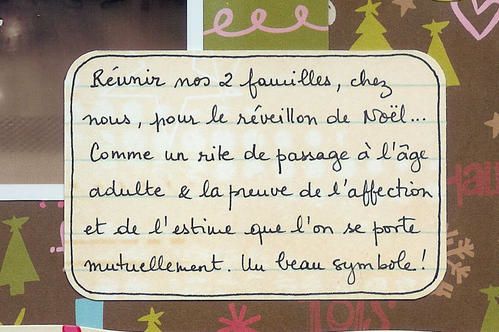 Réunir nos 2 familles, chez
nous, pour le réveillon de Noël...
Comme un rite de passage à l'âge
adulte & la preuve de l'affection
et de l'estime que l'on se porte
mutuellement. Un beau symbole !